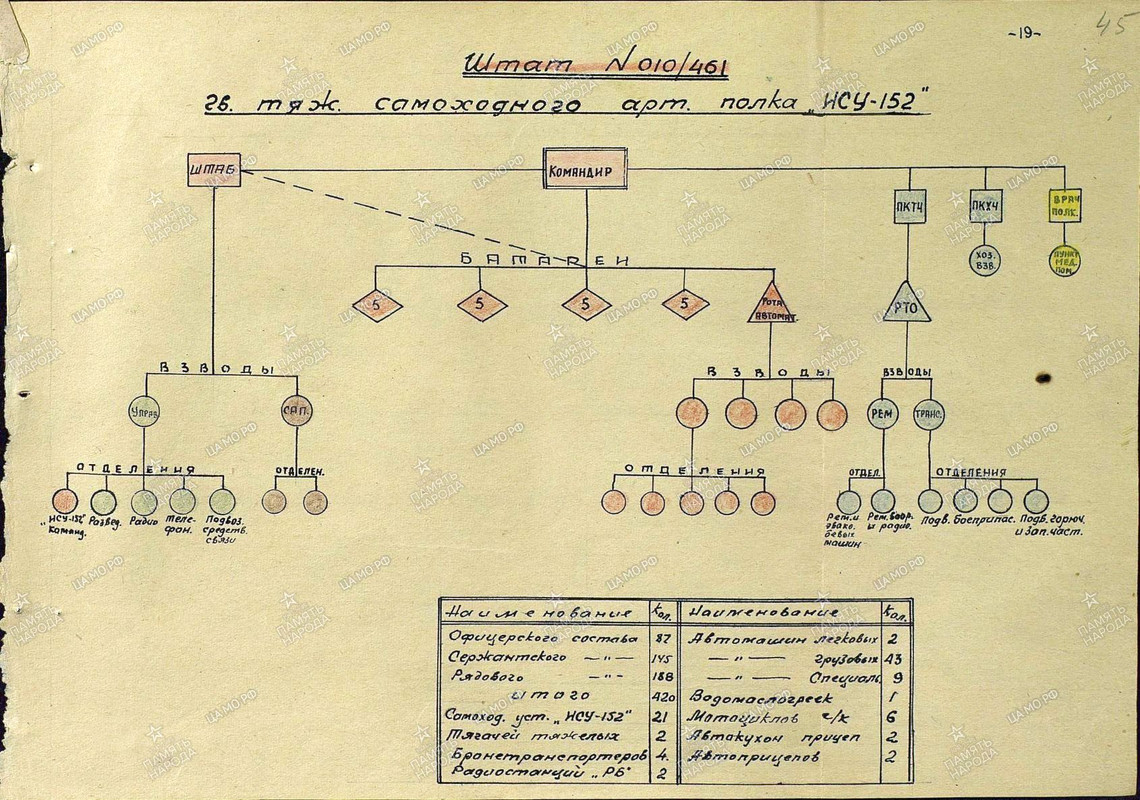 -19-
45
Штат №010/461
гв. тяж. самоходного арт. полка „ИСУ-152"
ШТАБ
Командир
ПКТЧ
ПКХЧ
ВРАЧ
ПОЛК.
ХОЗ.
ВЗВ.
ПУНКТ
МЕД.
ПОМ.
БАТАРЕИ
5 5 5 5
РОТА
АВТОМАТ.
РТО
ВЗВОДЫ
ВЗВОДЫ
ВЗВОДЫ
Управ.
САП.
РЕМ
ТРАНС.
ОТДЕЛЕНИЯ
ОТДЕЛЕН.
ОТДЕЛЕНИЯ
ОТДЕЛ.
ОТДЕЛЕНИЯ
„ИСУ-152"
Команд.
Развед.
Радио
Теле-
фон.
Подвоз.
средств.
связи
Рем. и
эвако.
боевых
машин
Рем. воор.
и радио.
Подв. боеприпас.
Подв. горюч.
и зап. част.
Наименование Кол. Наименование Кол.
Офицерского состава 87 Автомашин легковых 2
Сержантского —"— 145 —"— грузовых 43
Рядового —"— 188 —"— Специаль. 9
итого 420 Водомаслогреек 1
Самоход. уст. „ИСУ-152" 21 Мотоциклов с/к 6
Тягачей тяжелых 2 Автокухон прицеп 2
Бронетранспортеров 4. Автоприцепов 2
Радиостанций „РБ" 2
ПАМЯТЬ
НАРОДА
ЦАМО.РФ